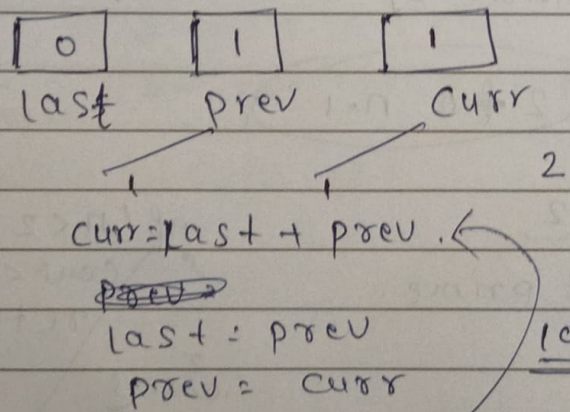 0 1 1
last prev curr
1 1 2
curr=last + prev.
last = prev
prev = curr